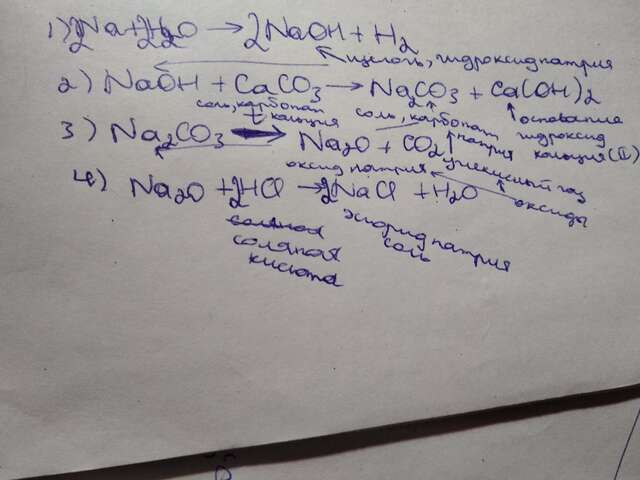 1) 2Na+2H2O → 2NaOH + H2
щелочь, гидроксид натрия
2) NaOH + CaCO3 → Na2CO3 + Ca(OH)2
соль, карбонат кальция
соль, карбонат натрия
основание гидроксид кальция (II)
3) Na2CO3 → Na2O + CO2
оксид натрия
углекислый газ
4) Na2O + 2HCl → 2NaCl + H2O
оксиды
соляная кислота
хлорид натрия
соль